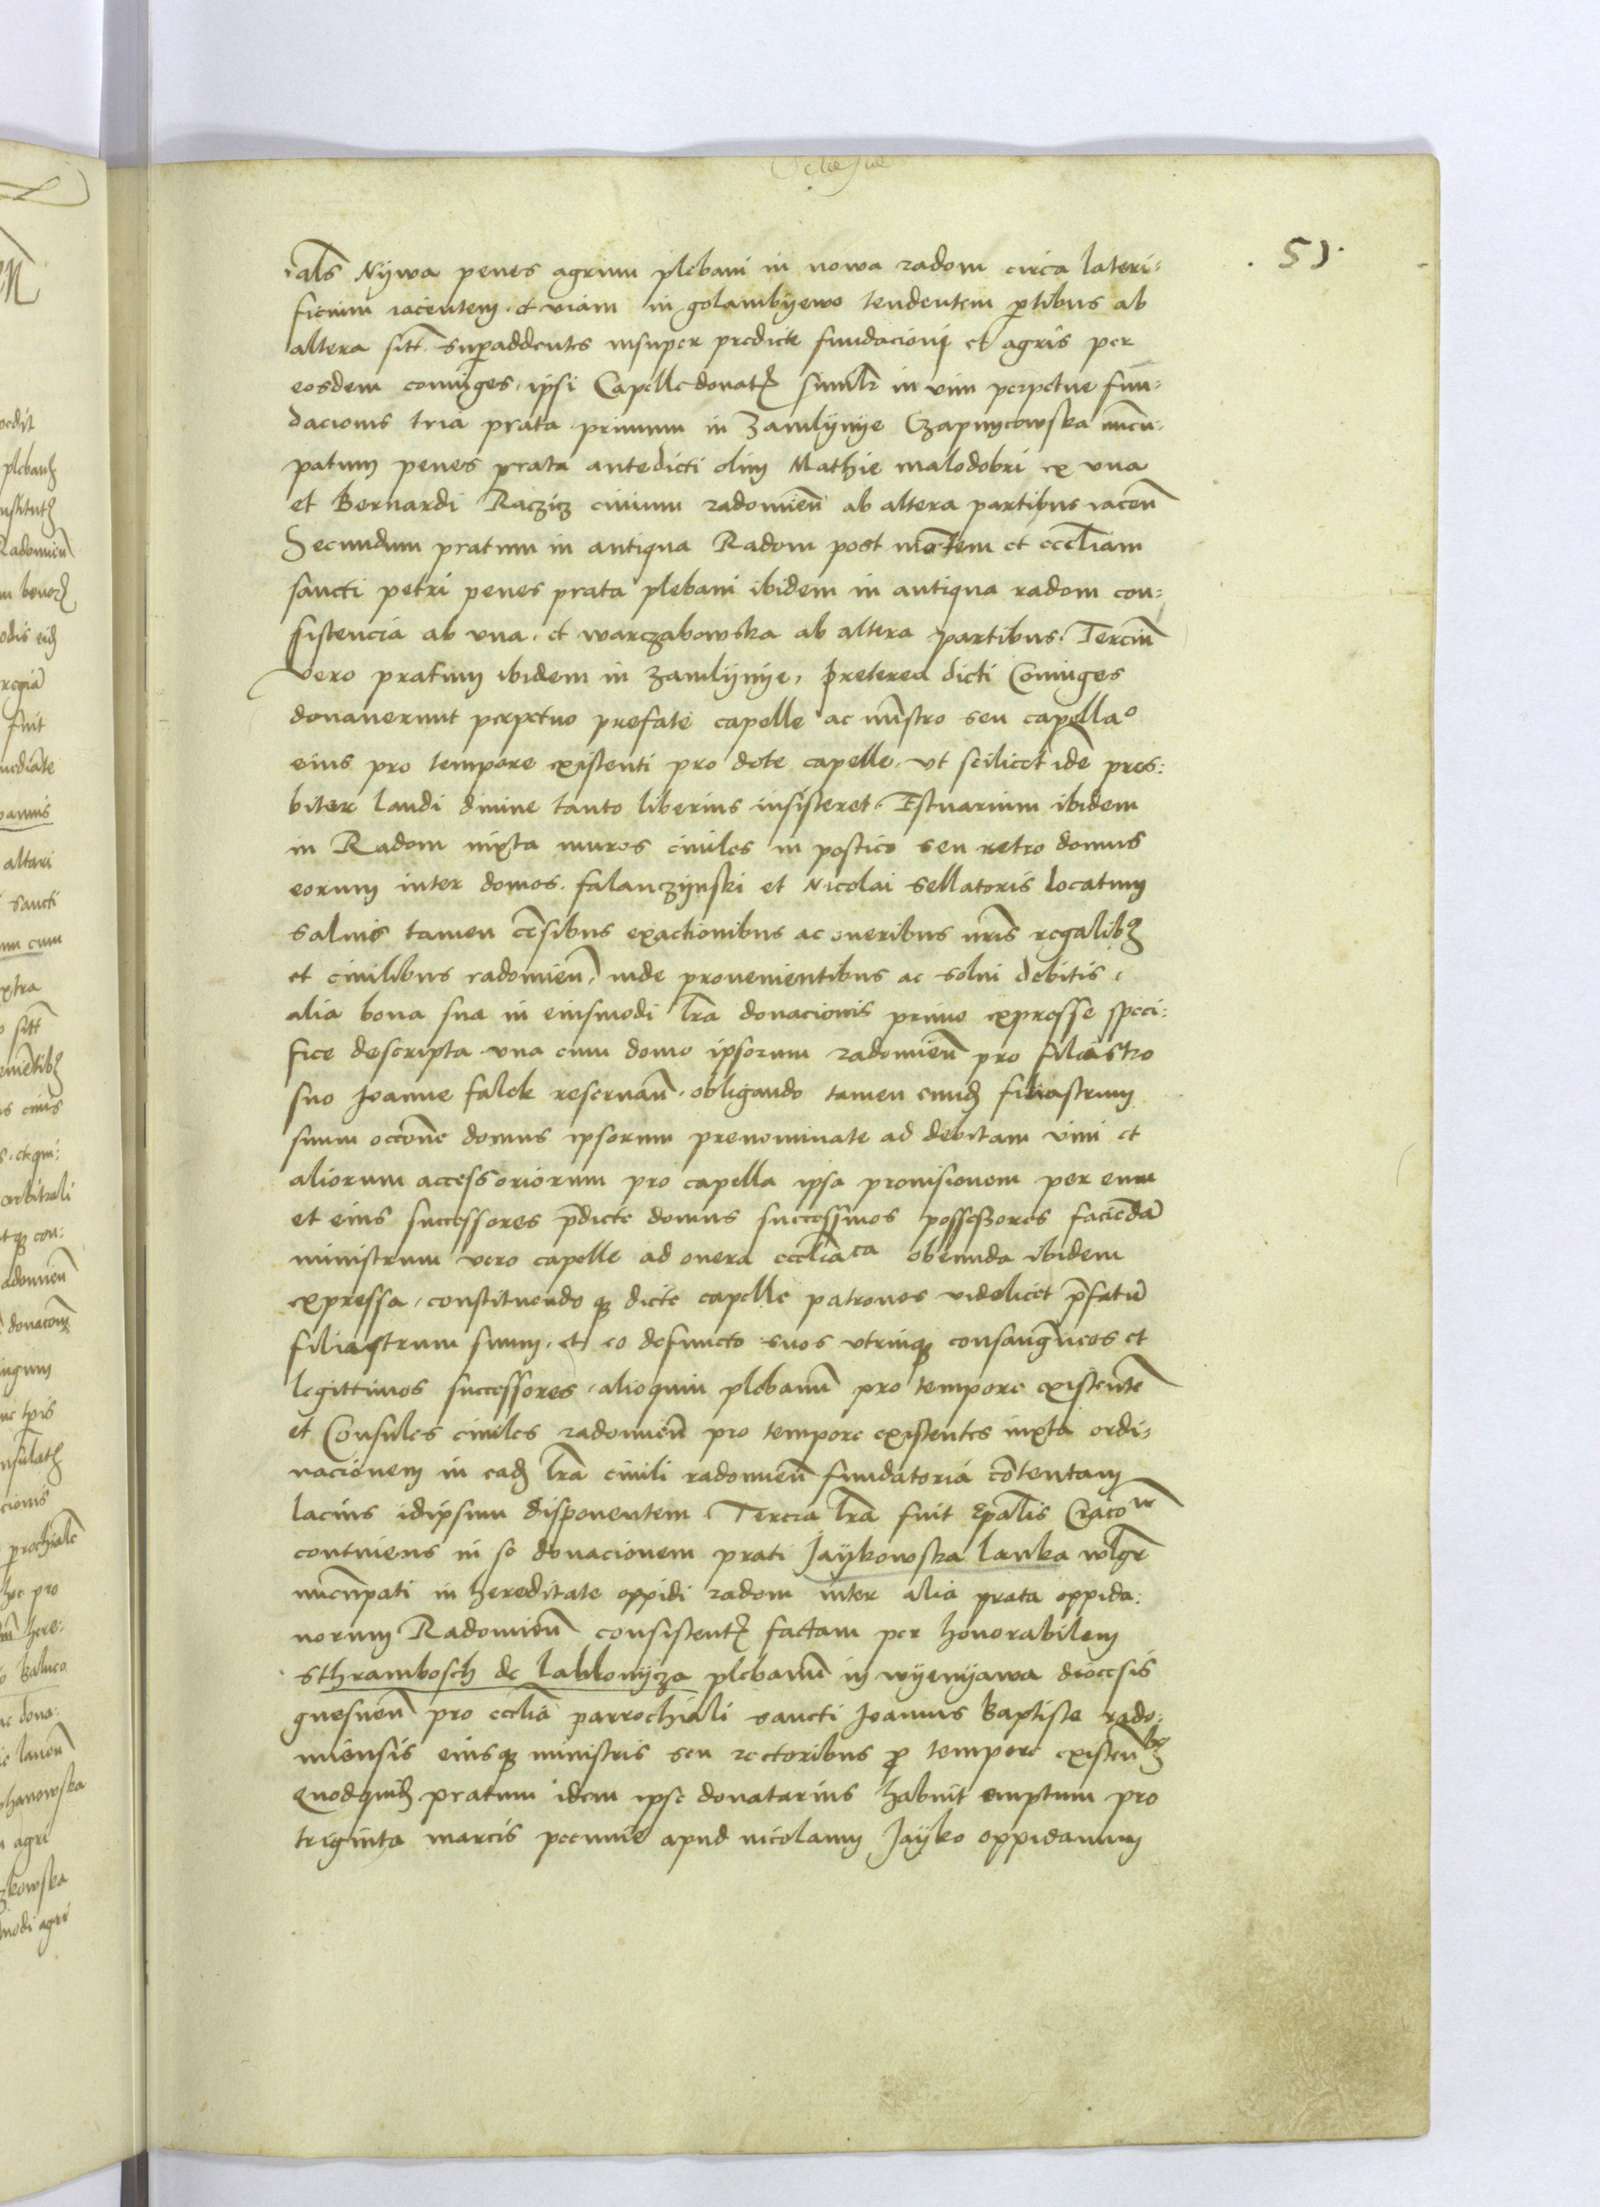 51
als Nywa penes agrum plebani in nowa radom circa lateri:
ficium iacentem et viam in golambyewo tendentem ptibus ab
altera sitt. Supaddentes insuper predicte fundacioni et agris per
eosdem coniuges ipsi Capelle donat simlr in vim perpetue fun:
dacionis tria prata primum in Zamlynye Czapnycowska nuncu:
patum penes prata antedicti olim Mathie malodobri ex vna
et Bernardi Raczicz civium radomien ab altera partibus iacen
Secundum pratum in antiqua Radom post montem et eccliam
sancti petri penes prata plebani ibidem in antiqua radom con:
sistencia ab vna et warczabowska ab altera partibus. Terciu
vero pratum ibidem in Zamlynye, preterea dicti Coniuges
donaverunt perpetuo prefate capelle ac mistro seu capellao
eius pro tempore existenti pro dote capelle vt scilicet ide pres:
biter laudi divine tanto liberius insisteret. Estuarium ibidem
in Radom iuxta muros civiles in postico seu retro domus
eorum inter domos falanczynski et Nicolai sellatoris locatum
salvis tamen cesibus exactionibus ac oneribus nris regalibus
et civilibus radomien, inde provenientibus ac solvi debitis,
alia bona sua in eiusmodi lra donacionis primo expresse speci:
fice descripta vna cum domo ipsorum radomien pro filiastro
suo Joanne falek reservan. obligando tamen eund filiastrum
suum occone domus ipsorum prenominate ad debitam vini et
aliorum accessoriorum pro capella ipsa provisionem per eum
et eius successores pdicte domus successivos possessores facieda
ministrum vero capelle ad onera ecclia ca obeunda ibidem
expressa, constituendoq dicte capelle patronos videlicet pfatu
filiastrum suum, et eo defuncto suos vtriusq consanguineos et
legittimos successores, alioquin plebanu pro tempore existente
et Consules civiles radomien pro tempore existentes iuxta ordi:
nacionem in ead lra civili radomien fundatoria cotentam
lacius idipsum disponentem. Tercia lra fuit Epalis Cracow
continens in se donacionem prati Jaykowska lanka wlgr
nuncupati in hereditate oppidi radom inter alia prata oppida:
norum Radomien consistent factam per honorabilem
Sthrambosch de lablonycza plebanu in wyenyawa diocesis
gnesnen pro ecclia parrochiali sancti Joannis Baptiste rado:
miensis eiusq ministris seu rectoribus p tempore existen bus
Quodquid pratum idem ipse donatarius habuit emptum pro
triginta marcis pecunie apud nicolaum Jayko oppidanum